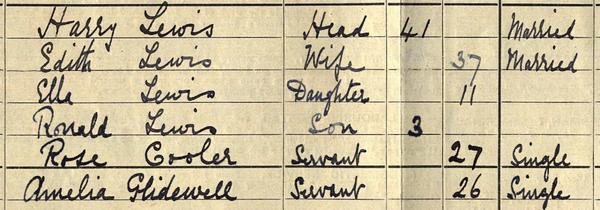 Harry Lewis Head 41 Married
Edith Lewis Wife 37 Married
Ella Lewis Daughter 11
Ronald Lewis Son 3
Rose Cooler Servant 27 Single
Amelia Glidewell Servant 26 Single